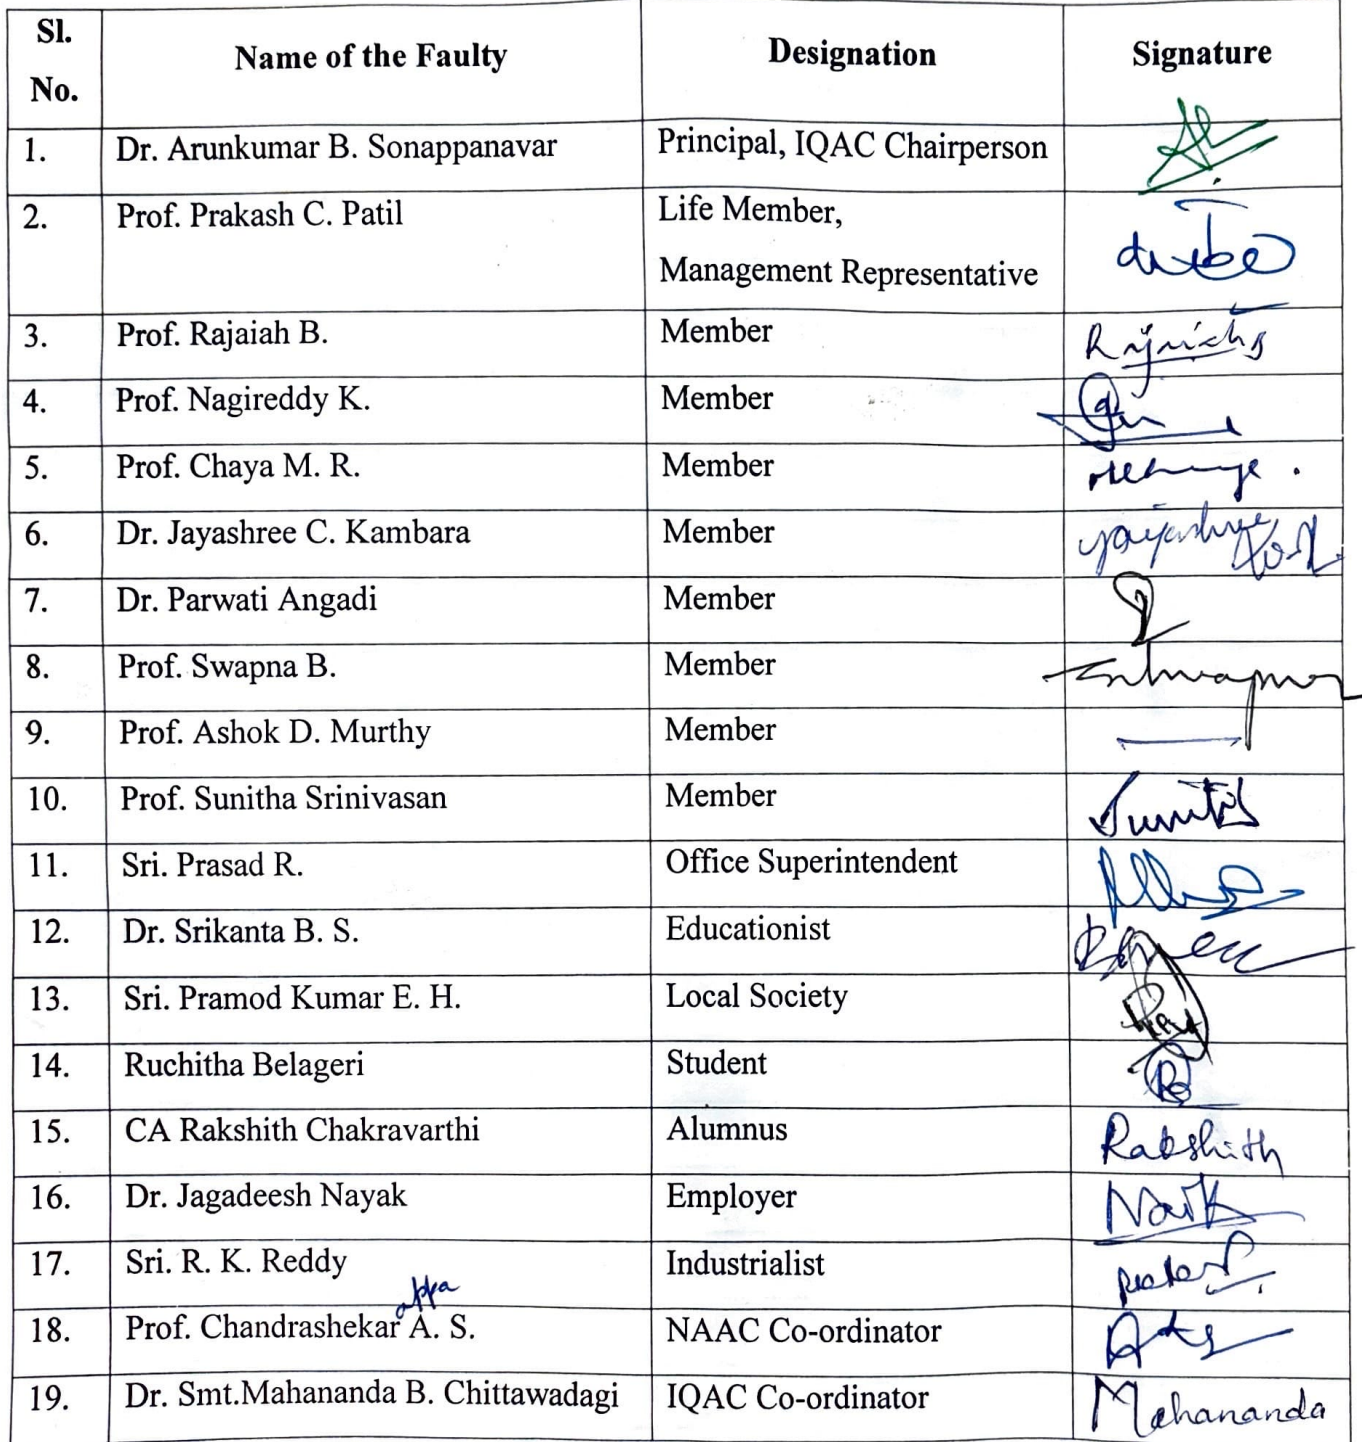 Sl. No. Name of the Faulty Designation Signature
1. Dr. Arunkumar B. Sonappanavar Principal, IQAC Chairperson
2. Prof. Prakash C. Patil Life Member,
Management Representative
3. Prof. Rajaiah B. Member
4. Prof. Nagireddy K. Member
5. Prof. Chaya M. R. Member
6. Dr. Jayashree C. Kambara Member Jayashree
7. Dr. Parwati Angadi Member
8. Prof. Swapna B. Member
9. Prof. Ashok D. Murthy Member
10. Prof. Sunitha Srinivasan Member
11. Sri. Prasad R. Office Superintendent
12. Dr. Srikanta B. S. Educationist
13. Sri. Pramod Kumar E. H. Local Society
14. Ruchitha Belageri Student
15. CA Rakshith Chakravarthi Alumnus Rakshith
16. Dr. Jagadeesh Nayak Employer
17. Sri. R. K. Reddy Industrialist
appa
18. Prof. Chandrashekar A. S. NAAC Co-ordinator
19. Dr. Smt.Mahananda B. Chittawadagi IQAC Co-ordinator Mahananda